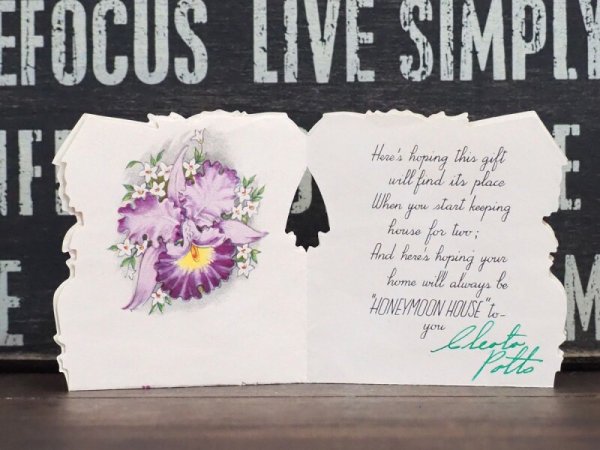 EFOCUS LIVE SIMPLY
Here's hoping this gift
will find its place
When you start keeping
house for two;
And here's hoping your
home will always be
"HONEYMOON HOUSE" to-
you
Cleota
Potts